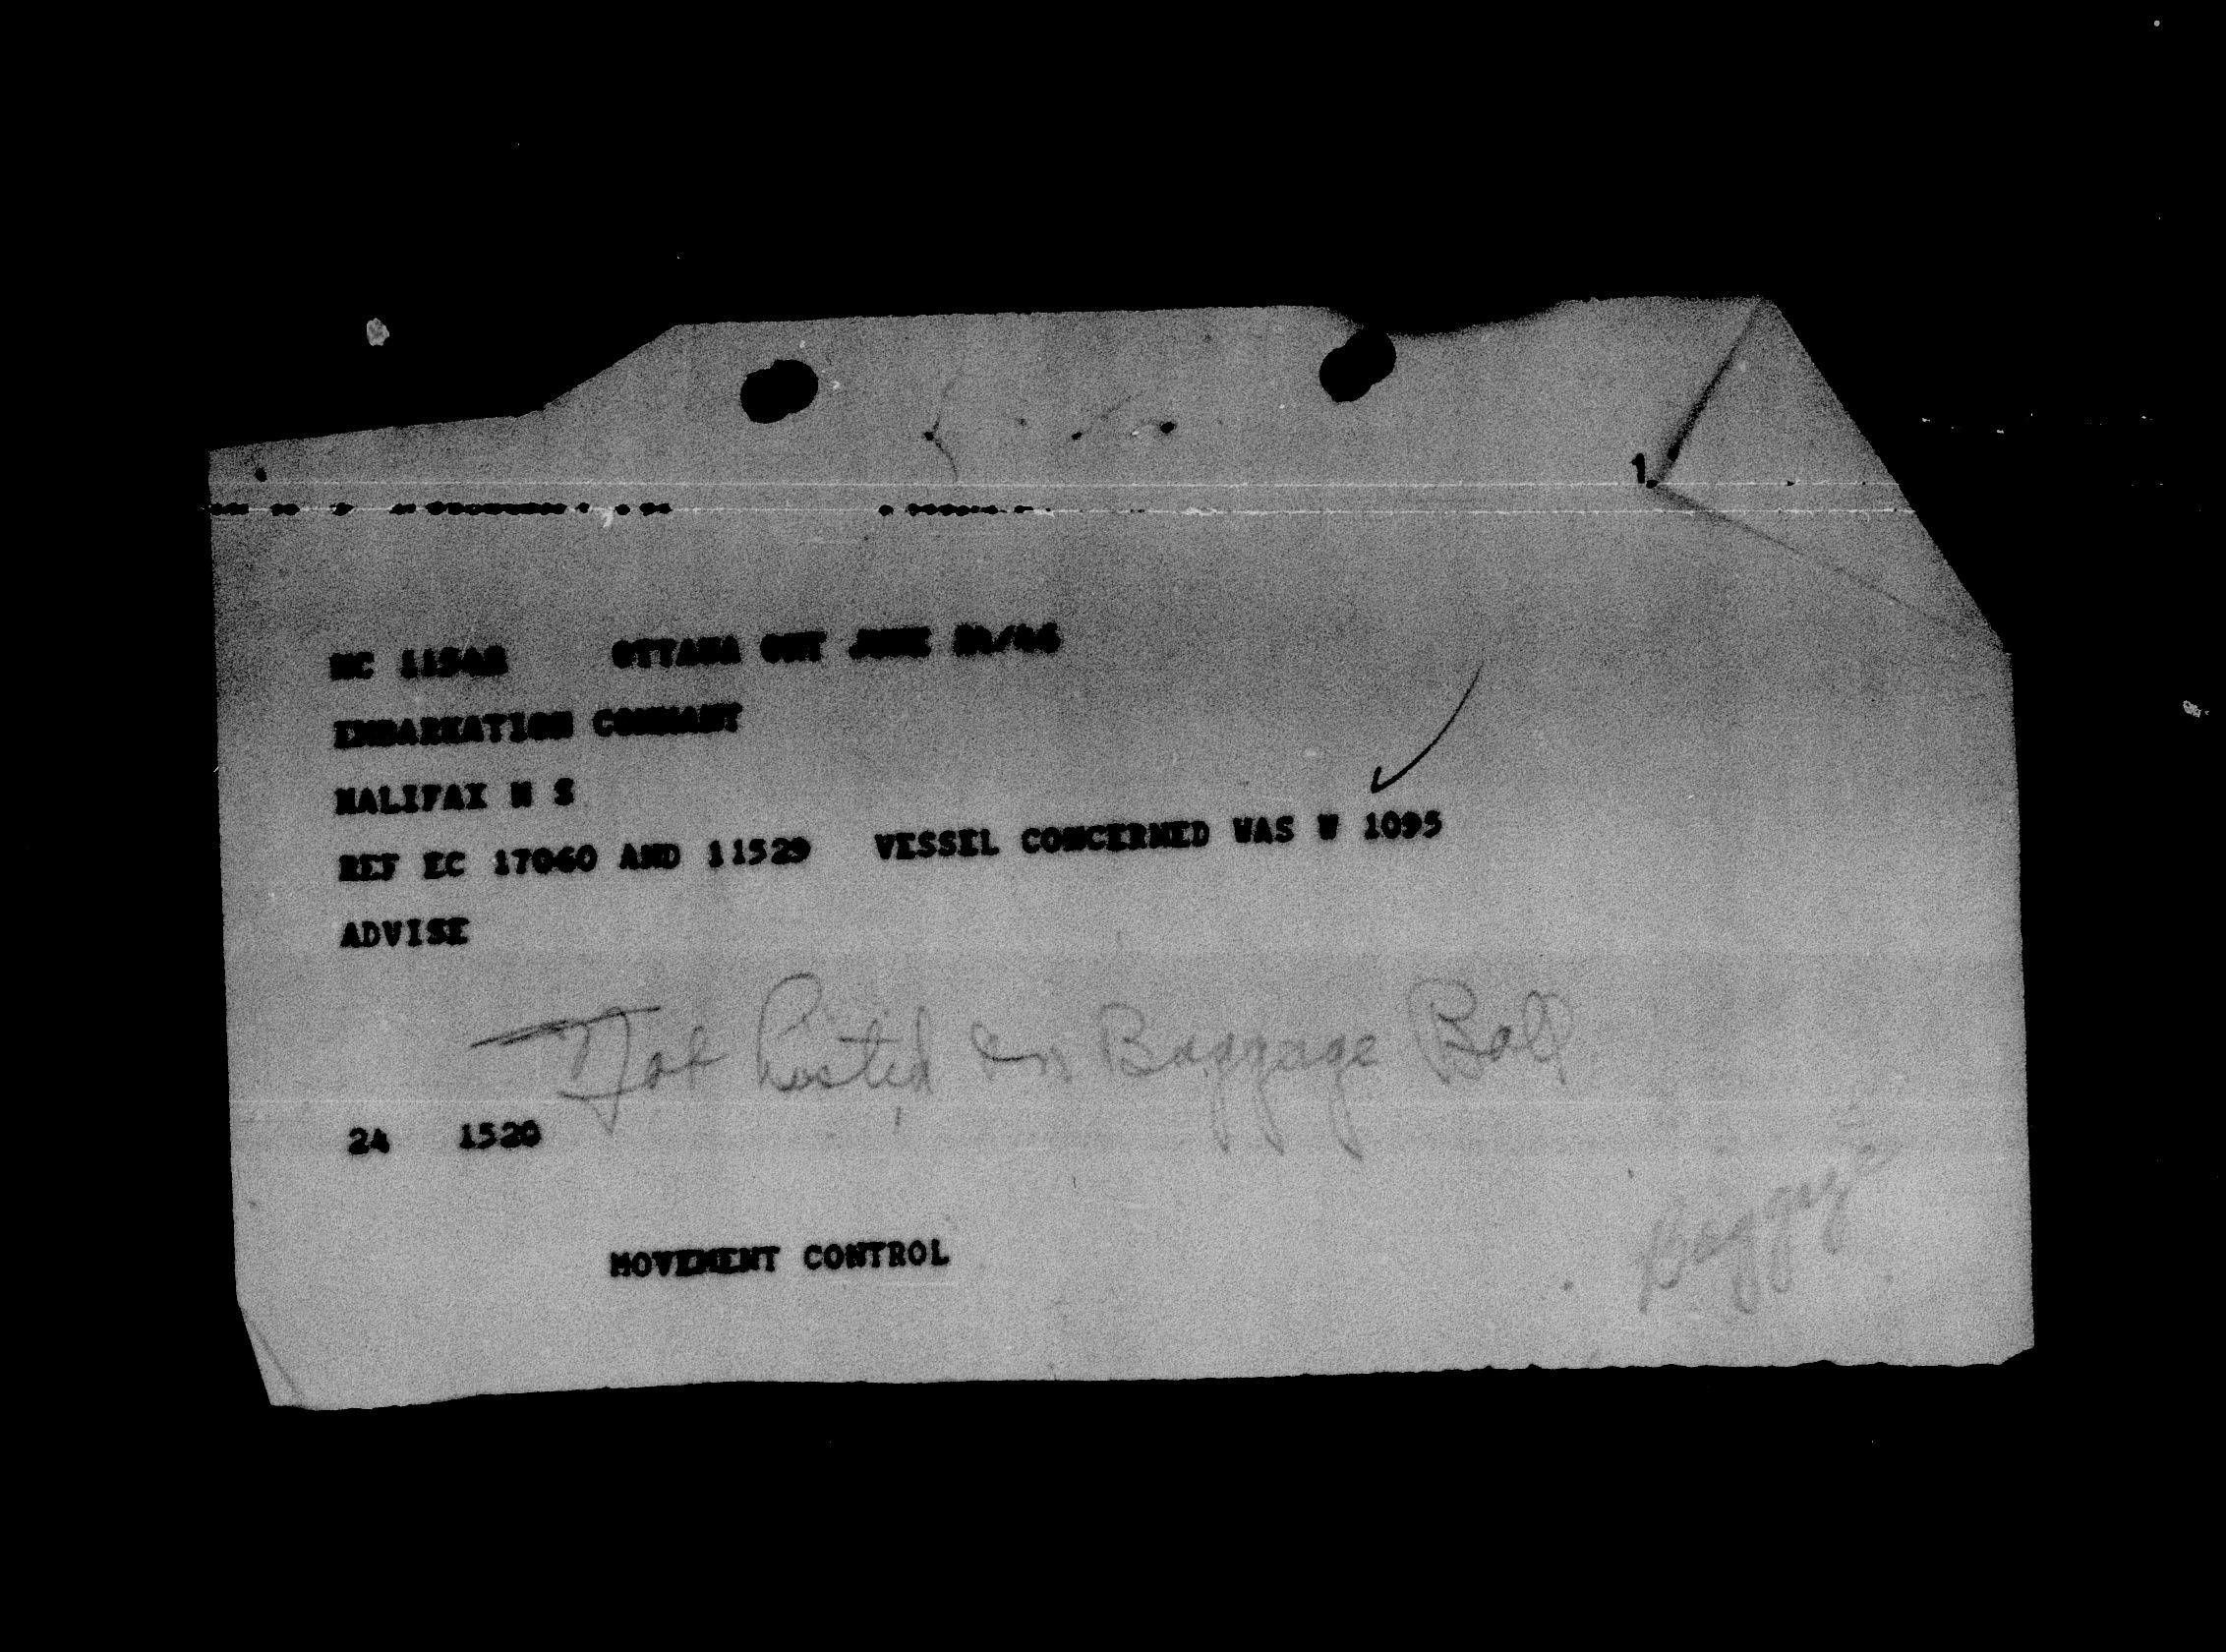 1.
MC 11542 OTTAWA ONT JUNE 24/46
EMBARKATION COMMANT
HALIFAX N S
REF EC 17060 AND 11529 VESSEL CONCERNED WAS W 1095
ADVISE
Not Listed on Baggage
24 1520
Baggage
MOVEMENT CONTROL